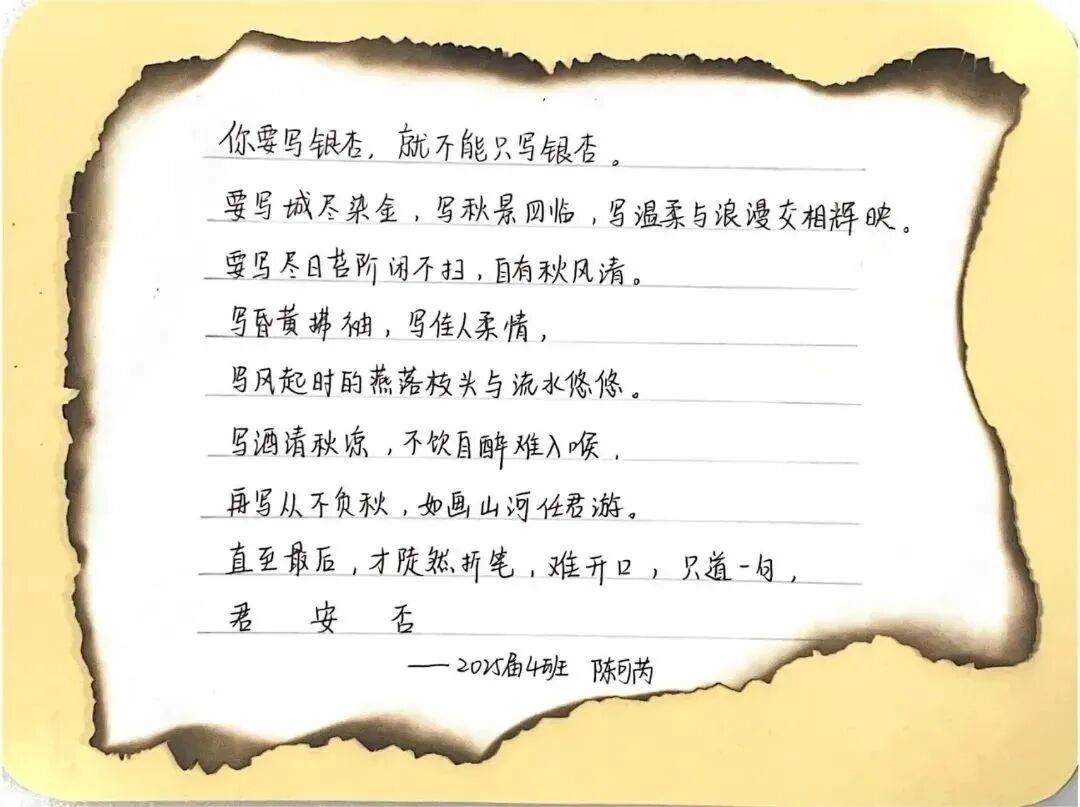 你要写银杏，就不能只写银杏。
要写城尽染金，写秋景网临，写温柔与浪漫交相辉映。
要写尽日苔阶闭不扫，自有秋风清。
写昏黄拂袖，写佳人柔情，
写风起时的燕落枝头与流水悠悠。
写酒清秋凉，不饮自醉难入喉，
再写从不负秋，如画山河任君游。
直至最后，才陡然折笔，难开口，只道一句，
君 安 否
——2025届4班 陈可芮